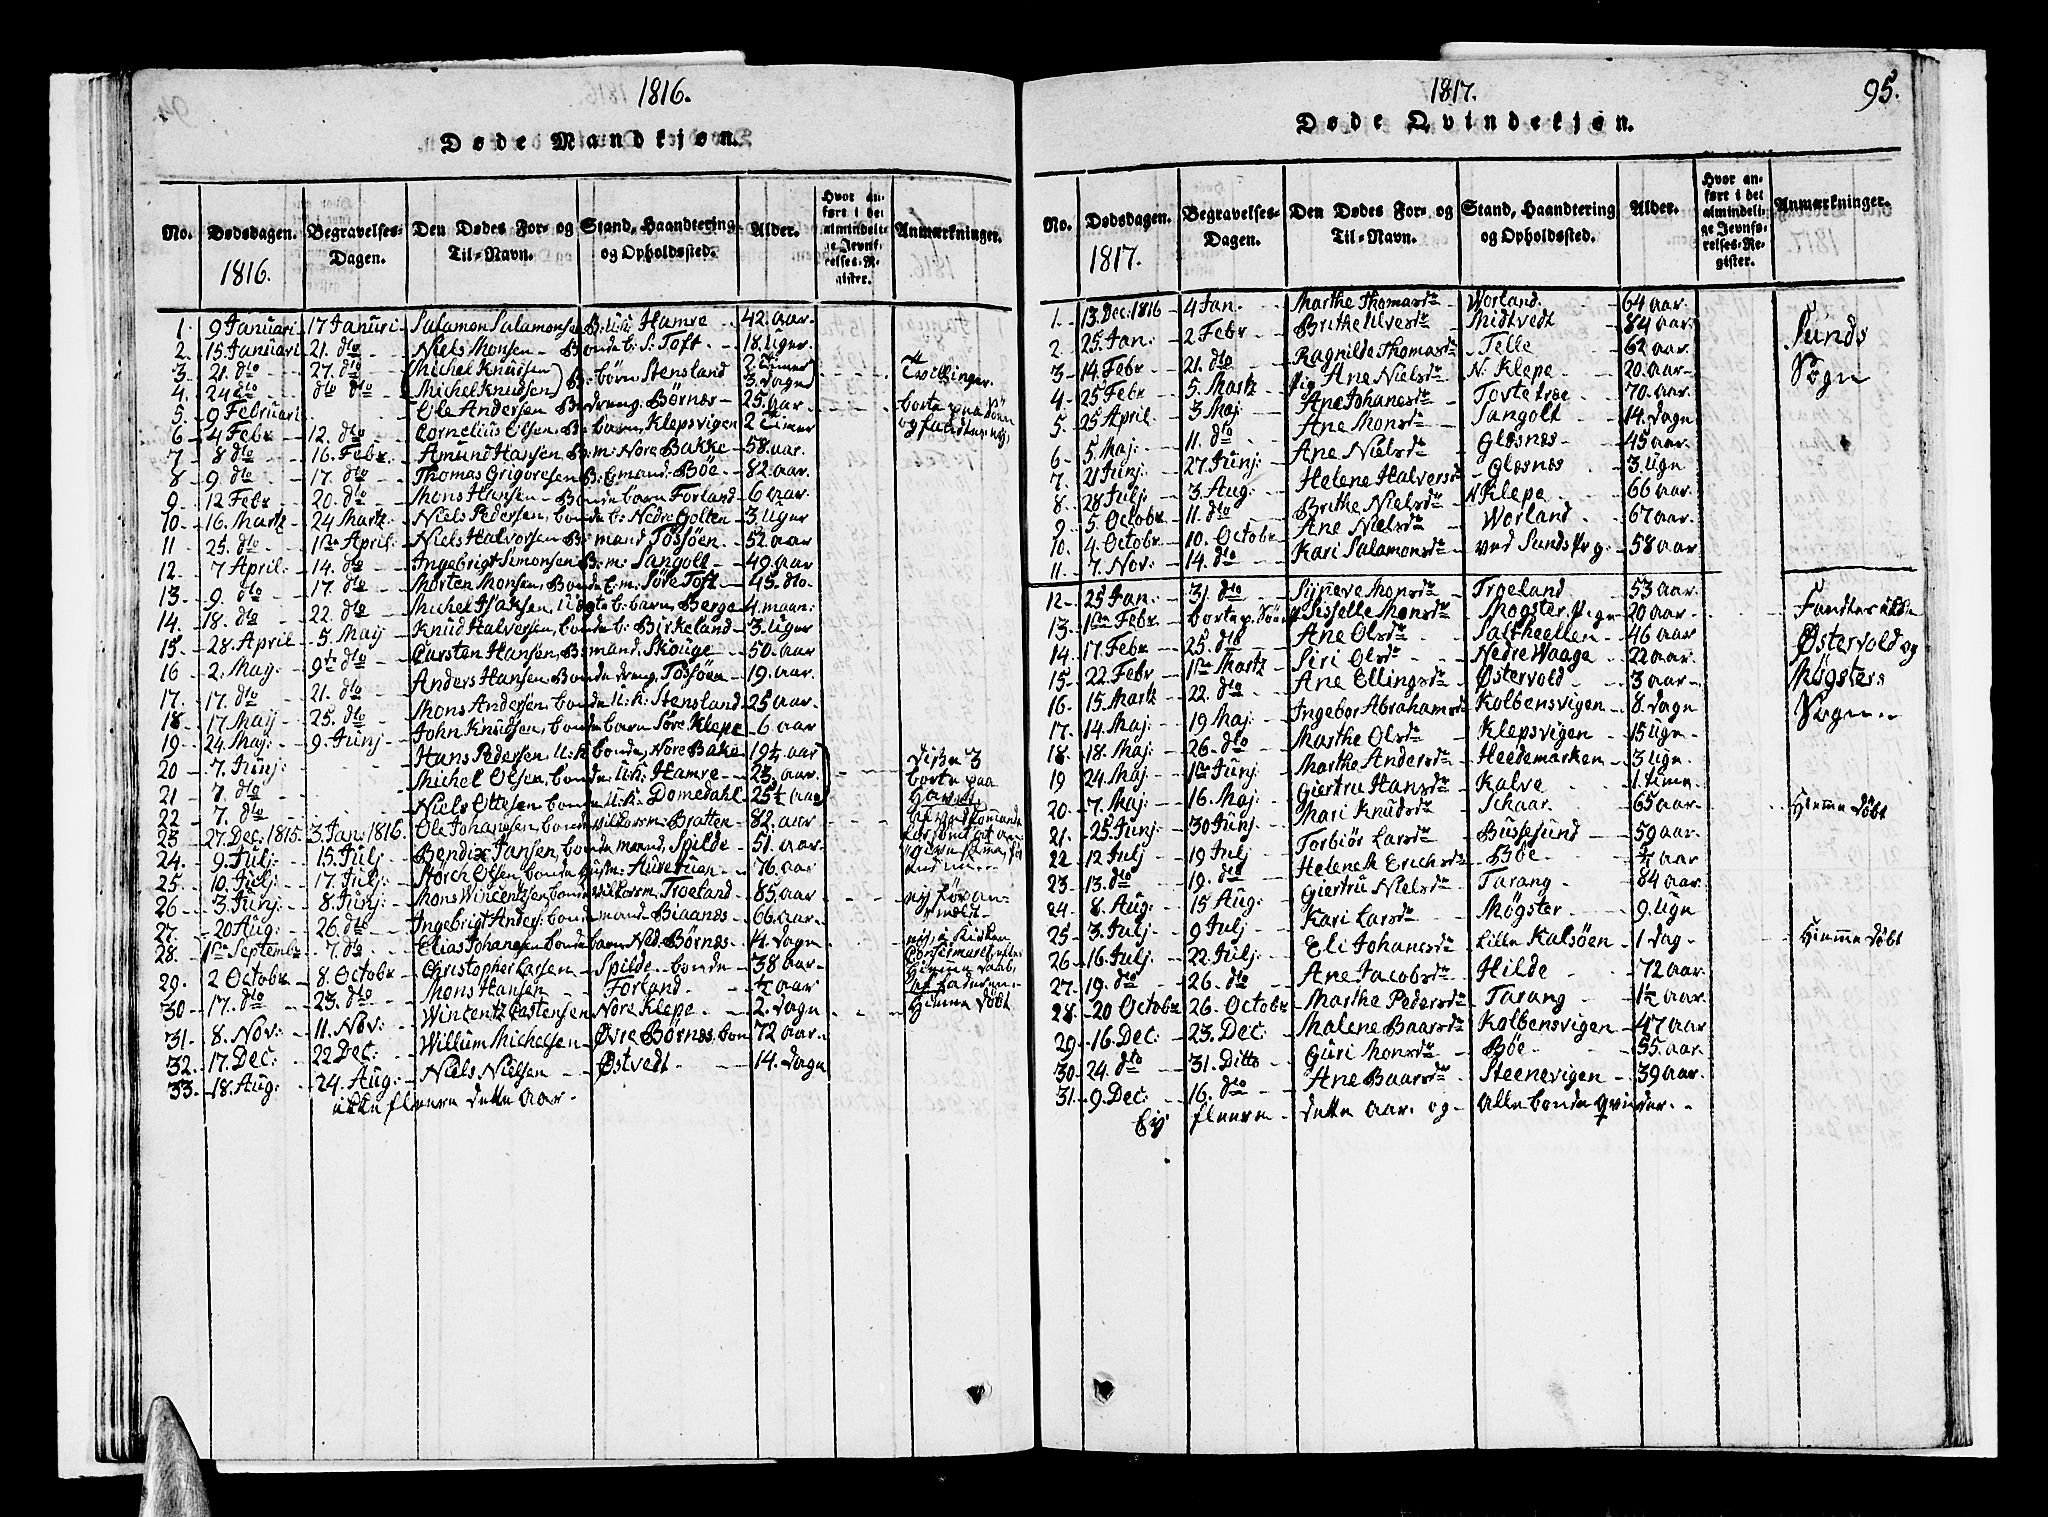 1816.
Døde Mandkjøn.
No. Dødsdagen. 1816. Begravelses-Dagen. Den Dødes For- og Til-Navn. Stand, Haandtering og Opholdssted. Alder. Hvor anført i det almindelige Jevnførelses-Register. Anmærkninger.
1. 9 Januari 17 Januri Salamon Salamonsen B: U: K: Hamre 42. aar.
2. 15 Januari 21. dto Niels Monsen Bonde b: S: Toft 18. Uger
3. 21. dto 27. dto Michel Knudsen B: børn Stensland 2 Timer Tvillinger.
4. 24 dto dto dto Michel Knudsen 3. Dage
5. 9 Februari Ole Andersen B: dreng. Børnæs 25. aar borte paa Søen
6. 4 Febr 12. dto Cornelius Olsen, B: barn, Klepsvigen 2 Timer og fandtes ej,
7. 8 dto 16. Febr. Amund Hansen B: m: Nore Bakke 58. aar.
8. 9. dto 17. dto Thomas Grigoresen B: E: mand Bøe 82. aar.
9. 12 Febr 20. dto Mons Hansen Bonde barn Forland 6 aar.
10. 16. Martz 24 Martz. Niels Pedersen, bonde b: Nedre Golten 3. Uger
11. 25. dto 1ste April. Niels Halvorsen B: mand Tossøen 52 aar
12. 7 April: 14. dto Ingebrigt Simonsen B: m: Sangolt 49. aar
13. 9. dto 17. dto Morten Monsen, Bonde E: m: Søre Toft 45. dto.
14. 18. dto 22. dto Michel Isaksen, Udgte b: barn, Berge 4. maan:
15. 28. April 5. May Knud Halversen, bonde b: Birkeland 3. Uger
16. 2. May: 9de dto Carsten Hansen, B: mand. Skouge 50. aar
17. 17. dto 21. dto Anders Hansen, Bonde dreng, Tossøen 19. aar.
18. 17 Maij 25. dto Mons Andersen, bonde U: K: Stensland 25 aar
19. 24. Maj: 9. Junj John Knudsen, bonde barn Søre Klepe 6 aar
20. 7. Junj: Hans Pedersen, U: K bonde, Nore Bake 19½ aar Disse 3
21. 7. dto Michel Olsen, bonde U: K: Hamre 23. aar. borte paa
22. 7. dto Niels Ottesen bonde U: K: Domedahl 25½ aar Havet
23. 27. Dec. 1815. 3 Jan: 1816. Ole Johansen, bonde vilkorsm: Bratten 82. aar
24. 9. Julj: 15. Julj Bendix Jansen, bonde mand, Spilde 51. aar.
25. 10. Julj 17. Julj: Storch Olsen, bonde husm: Auretuen 76. aar
26. 3. Junj: 8. Junj: Mons Wincentzen, bonde vilkorsm. Troeland 85. aar ny før an-
27. 20 Aug: 26. dto Ingebrigt Anders: bonde mand Biaanæs 66 aar. meldt
28. 1ste Septembr 7. dto Elias Johansen bonde barn Ned. Børnæs 14. Dage
29. 2 Octobr 8. Octobr Christopher Larsen Spilde bonde 38 aar. Hiemme Daab,
30. 17. dto 23. dto Mons Hansen Forland ½ aar af Faderen
31. 8. Nov: 11. Nov: Wincentz Castensen Nore Klepe 2. Dage Hiemme Døbt
32. 17. Dec: 22 Dec: Willum Michelsen Øvre Børnæs, bon 72 aar.
33. 18. Aug: 24. Aug: Niels Nielsen Østvedt 14. Dage
ikke fleere dette aar.
1817.
95.
Døde Qvindekjøn.
No. Dødsdagen. 1817. Begravelses-Dagen. Den Dødes For- og Til-Navn. Stand, Haandtering og Opholdssted. Alder. Hvor anført i det almindelige Jevnførelses-Register. Anmærkninger.
1. 13. Dec: 1816 4 Jan. Marthe Thomasdr Worland 64 aar.
2. 25. Jan: 2 Febr Brithe Iversdr Midtvedt 84 aar. Sunds
3. 14. Febr 21. dto Ragnilde Thomasdr Telle 62 aar. Sogn
4. 25 Febr 5. Martz Pig Ane Nielsdr N. Klepe 20. aar.
5. 25 April 3 Maj Ane Johanesdr Tostetræe 70. aar.
6. 5. Maj: 11. dto Ane Monsdr Sangolt 14. Dage
7. 21 Junj: 27 Junj: Ane Nielsdr Glesnæs 45 aar.
8. 28 Julj: 3 Aug: Helene Halversdr Glesnæs 3. Ugn
9. 5. Octobr 11. dto Brithe Nielsdr N. Klepe 66 aar.
10. 4. Octobr 10. Octobr Ane Nielsdr Worland 67 aar.
11. 7. Nov: 14. dto Kari Salamonsdr ved Sunds Pr.g: 58 aar
12. 25 Jan: 31. dto Synneve Monsdr Troeland 53 aar.
13. 1ste Febr borte p. Søen Sisselle Monsdr Mogster, Pige 20 aar. Fandtes ikke
14. 17. Febr 25. dto Ane Olsdr Saltheellen 46 aar. Østervold og
15. 22 Febr 1ste Martz Siri Olsdr Nedre Waage 22 aar. Møgsters
16. 15. Martz 22. dto Ane Ellingsdr Østervold 3 aar Sogn.
17. 14. Maj: 19 Maj: Ingebor Abrahamsdr Kolbensvigen 8. Dage
18. 18. Maj: 26. dto Marthe Olsdr Klepsvigen 15 Ugn
19 24. Maj: 1ste Junj: Marthe Andersdr Heedemarken 3 ugn
20. 7. Maj: 16. Maj: Giertru Hansdr Kalve 1. time
21. 25 Junj: 30 Junj: Mari Knudsdr Schaar 65 aar. Hiemme Døbt
22 12 Julj 19 Julj Torbiør Larsdr Bussesund 59 aar.
23. 13. dto 19. dto Helene Erichsdr Bøe ½ aar
24. 8. Aug: 15 Aug: Giertru Nielsdr Tarang 84 aar.
25. 3. Julj: 9 Julj: Kari Larsdr Møgster 9. Ugn
26. 16. Julj: 22 Julj: Eli Johanesdr Lille Kalsøen 1. Dag Hiemme Døbt
27. 19. dto 26. dto Ane Jacobsdr Hilde 72 aar.
28. 20 Octobr 26. Octobr Marthe Pedersdr Tarang 1½ aar.
29. 16. Dec: 23. Dec: Malene Baarsdr Kolbensvigen 47 aar
30. 24. dto 31. Ditto Guri Monsdr Bøe 55. aar.
31. 9. Dec: 16. dto Ane Baarsdr Steenevigen 39 aar.
Ey fleere dette aar. og alle bonde qvinder.